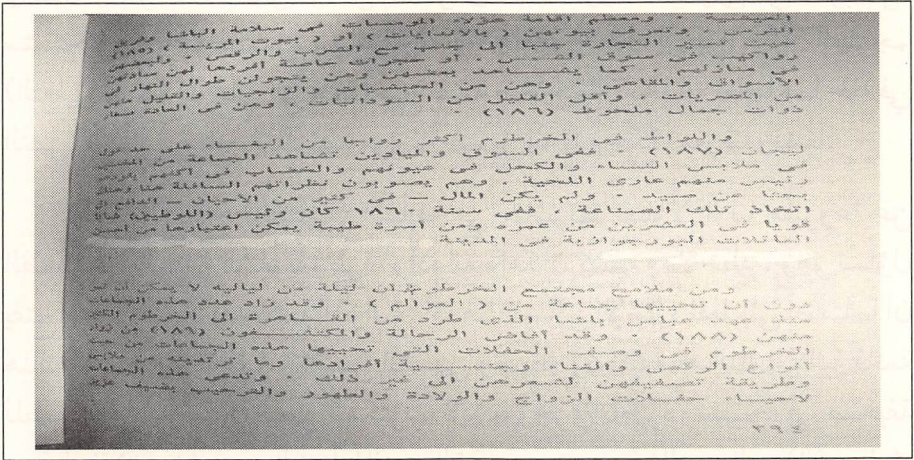 المعيشية . ومعظم اقامة هؤلاء المومسات فى سلامة الباشا وفريق
الترس . وتعرف بيوتهن ( بالاندايات ) أو ( بيوت المريسة ) (١٨٥)
حيث تسير التجارة جنبا الى جنب مع الشرب والرقص . ولبعضهن
رواكيب فى سوق العيش . أو حجرات خاصة أفردها لهن سادتهن
فى منازلهم . كما يشاهد بعضهن وهن يتجولن طوال النهار فى
الأسواق والمقاهى . وهن من الحبشيات والزنجيات والقليل منهن
من المصريات . وأقل القليل من السودانيات . وهن فى العادة صغار
ذوات جمال ملحوظ (١٨٦) .
واللواط فى الخرطوم أكثر رواجا من البغاء على حد قول
ليجان (١٨٧) . ففى السوق والميادين تشاهد الجماعة من المخنثين
فى ملابس النساء والكحل فى عيونهم والخضاب فى أكفهم يقودهم
رئيس منهم عارى اللحية . وهم يصوبون نظراتهم السافلة هنا وهناك
بحثا عن صيد . ولم يكن المال ــ فى كثير من الأحيان ــ الدافع الى
اتخاذ تلك الصناعة . ففى سنة ١٨٦٠ كان رئيس (اللوطيين) شابا
قويا فى العشرين من عمره ومن أسرة طيبة يمكن اعتبارها من أحسن
العائلات البورجوازية فى المدينة
ومن ملامح مجتمع الخرطوم ان ليلة من لياليه لا يمكن أن تمر
دون أن تحييها جماعة من ( العوالم ) . وقد زاد عدد هذه الجماعات
منذ عهد عباس باشا الذى طرد من القاهرة الى الخرطوم الكثير
منهن (١٨٨) . وقد أفاض الرحالة والمكتشفون (١٨٩) من زوار
الخرطوم فى وصف الحفلات التى تحييها هذه الجماعات من حيث
أنواع الرقص والغناء وجنسية أفرادها وما ترتدينه من ملابس
وطريقة تصفيفهن لشعرهن الى غير ذلك . وتدعى هذه الجماعات
لاحياء حفلات الزواج والولادة والطهور والترحيب بضيف عزيز
٣٩٤